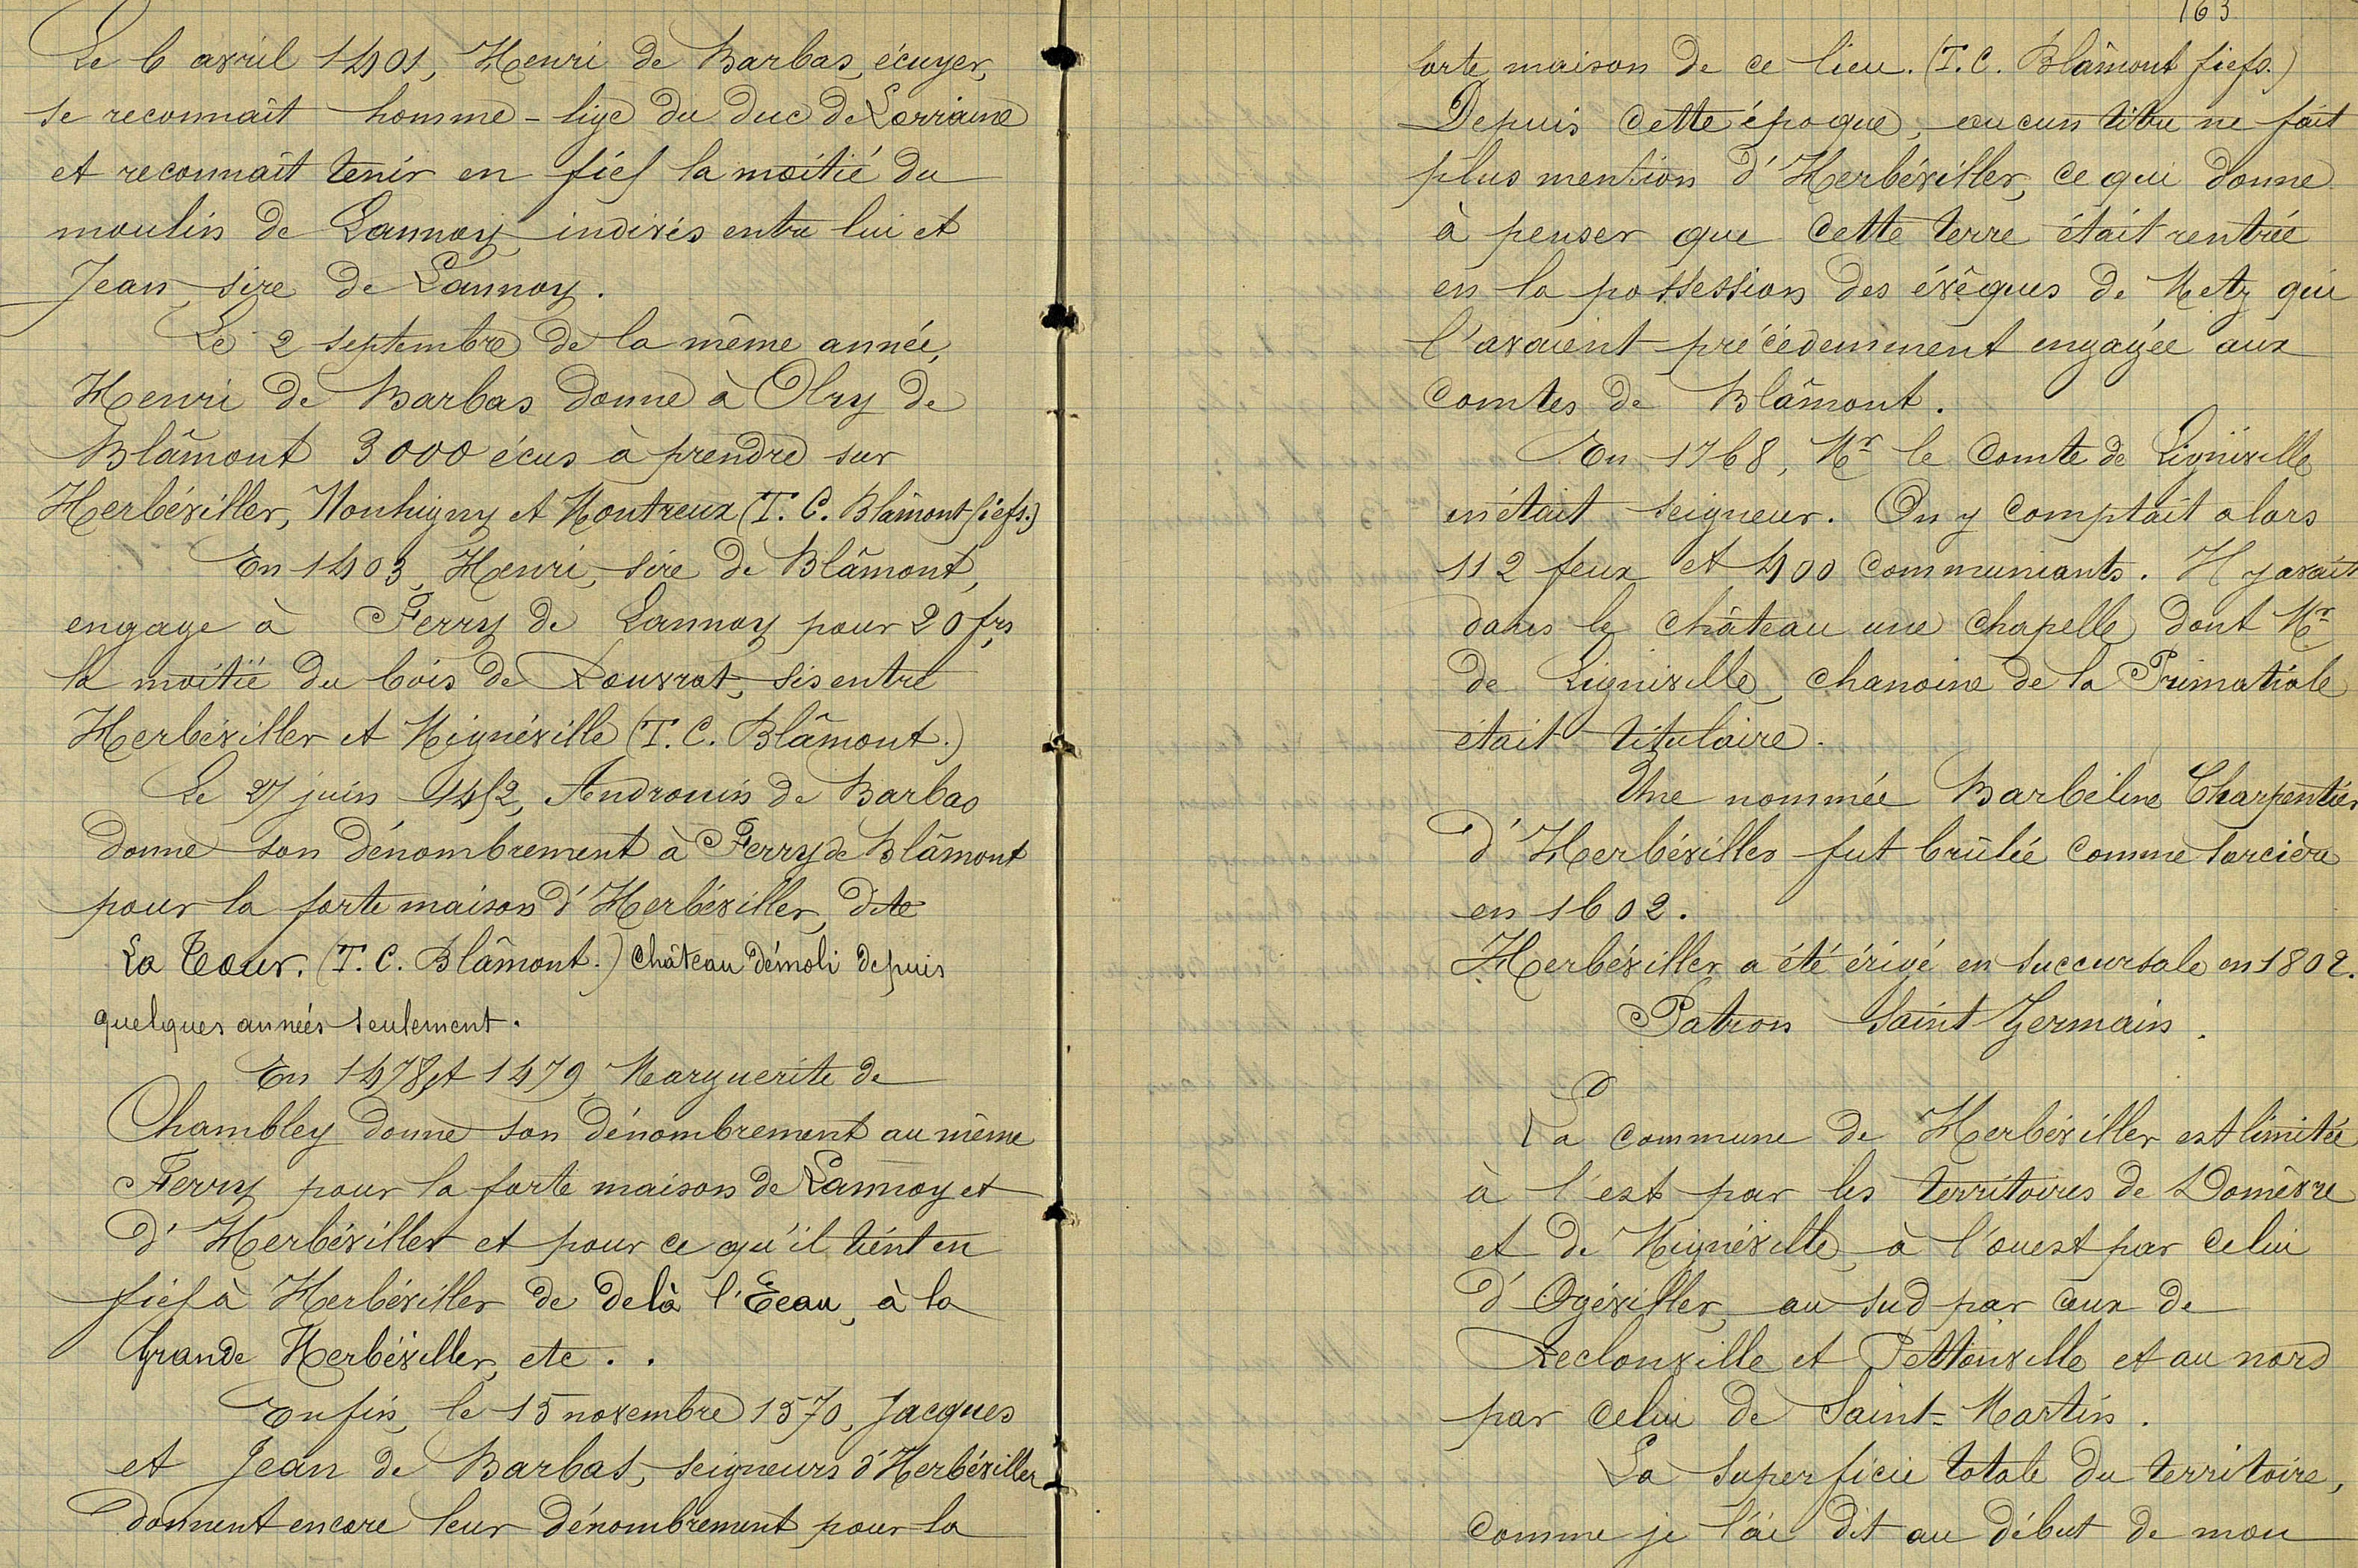 Le 6 avril 1401, Henri de Barbas, écuyer,
se reconnaît homme-lige du duc de Lorraine
et reconnaît tenir en fief la moitié du
moulin de Lannoy, indivis entre lui et
Jean, sire de Lannoy.
Le 2 septembre de la même année,
Henri de Barbas donne à Olry de
Blâmont 3000 écus à prendre sur
Herbéviller, Nonhigny et Montreux (T. C. Blâmont fiefs.)
En 1403, Henri, sire de Blâmont,
engage à Ferry de Lannoy pour 20 frs
la moitié du bois de Rouvrat, sis entre
Herbéviller et Mignéville (T. C. Blâmont.)
Le 27 juin 1452, Androuin de Barbas
donne son dénombrement à Ferry de Blâmont
pour la forte maison d'Herbéviller, dite
La Tour. (T. C. Blâmont.) château démoli depuis
quelques années seulement.
En 1478 et 1479, Marguerite de
Chambley donne son dénombrement au même
Ferry pour la forte maison de Lannoy et
d'Herbéviller et pour ce qu'il tient en
fief à Herbéviller de delà l'Eeau, à la
Grande Herbéviller, etc..
Enfin, le 15 novembre 1570, Jacques
et Jean de Barbas, seigneurs d'Herbéviller
donnent encore leur dénombrement pour la
163
forte maison de ce lieu. (T. C. Blâmont fiefs.)
Depuis cette époque, aucun titre ne fait
plus mention d'Herbéviller, ce qui donne
à penser que cette terre était rentrée
en la possession des évêques de Metz qui
l'avaient précédemment engagée aux
comtes de Blâmont.
En 1768, Mr le Comte de Ligniville
en était seigneur. On y comptait alors
112 feux et 400 communiants. Il y avait
dans le château une chapelle dont Mr
de Ligniville, chanoine de la Primatiale
était titulaire.
Une nommée Barbéline Charpentier
d'Herbéviller fut brûlée comme sorcière
en 1602.
Herbéviller a été érigé en succursale en 1802.
Patron Saint Germain.
La commune de Herbéviller est limitée
à l'est par les territoires de Domèvre
et de Mignéville, à l'ouest par celui
d'Ogéviller, au sud par ceux de
Reclonville et Pettonville et au nord
par celui de Saint-Martin.
La superficie totale du territoire,
comme je l'ai dit au début de mon